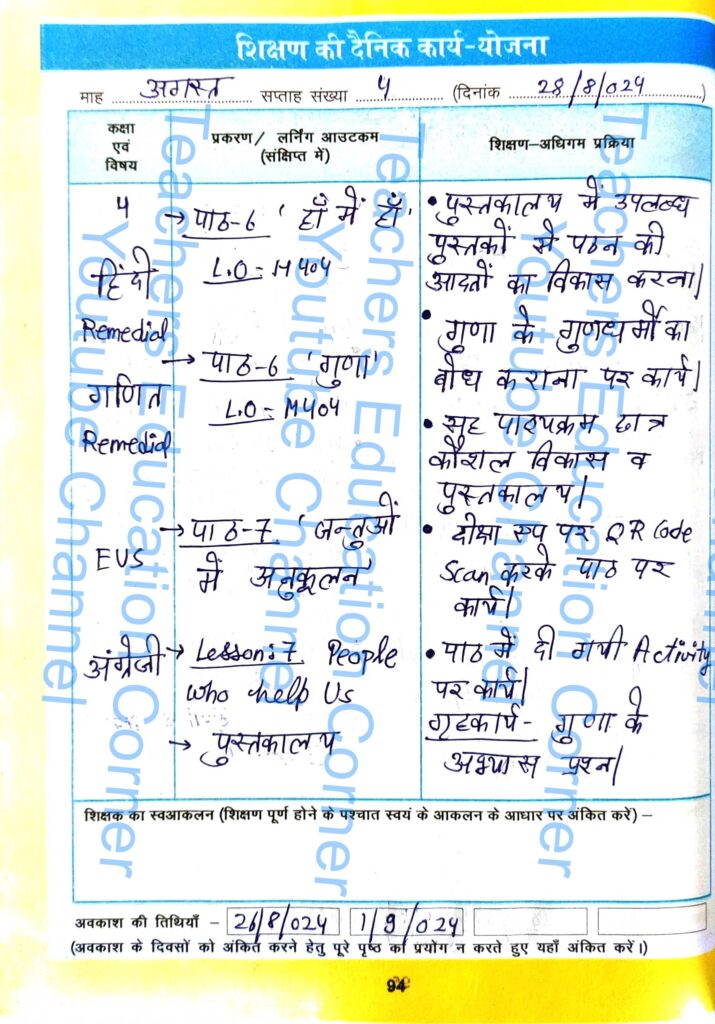 शिक्षण की दैनिक कार्य-योजना
माह अगस्त सप्ताह संख्या 4 (दिनांक 28/8/024)
कक्षा एवं विषय
प्रकरण/ लर्निंग आउटकम (संक्षिप्त में)
शिक्षण-अधिगम प्रक्रिया
4
हिंदी
Remedial
→ पाठ-6 'हाँ में हाँ'
L.O - H404
• पुस्तकालय में उपलब्ध
पुस्तकों से पठन की
आदतों का विकास करना।
गणित
Remedial
→ पाठ-6 'गुणा'
L.O - M404
• गुणा के गुणधर्मों का
बोध कराना पर कार्य।
• सह पाठ्यक्रम छात्र
कौशल विकास व
पुस्तकालय।
EVS
→ पाठ-7 'जन्तुओं
में अनुकूलन'
• दीक्षा एप पर QR Code
Scan करके पाठ पर
कार्य।
अंग्रेजी
→ Lesson:7 People
who help Us
→ पुस्तकालय
• पाठ में दी गयी Activity
पर कार्य।
गृहकार्य- गुणा के
अभ्यास प्रश्न।
शिक्षक का स्वआकलन (शिक्षण पूर्ण होने के पश्चात स्वयं के आकलन के आधार पर अंकित करें) –
अवकाश की तिथियाँ – 26/8/024 1/9/024
(अवकाश के दिवसों को अंकित करने हेतु पूरे पृष्ठ का प्रयोग न करते हुए यहाँ अंकित करें।)
94
Teachers Education Corner
Youtube Channel
Teachers Education Corner
Youtube Channel
Teachers Education Corner
Youtube Channel